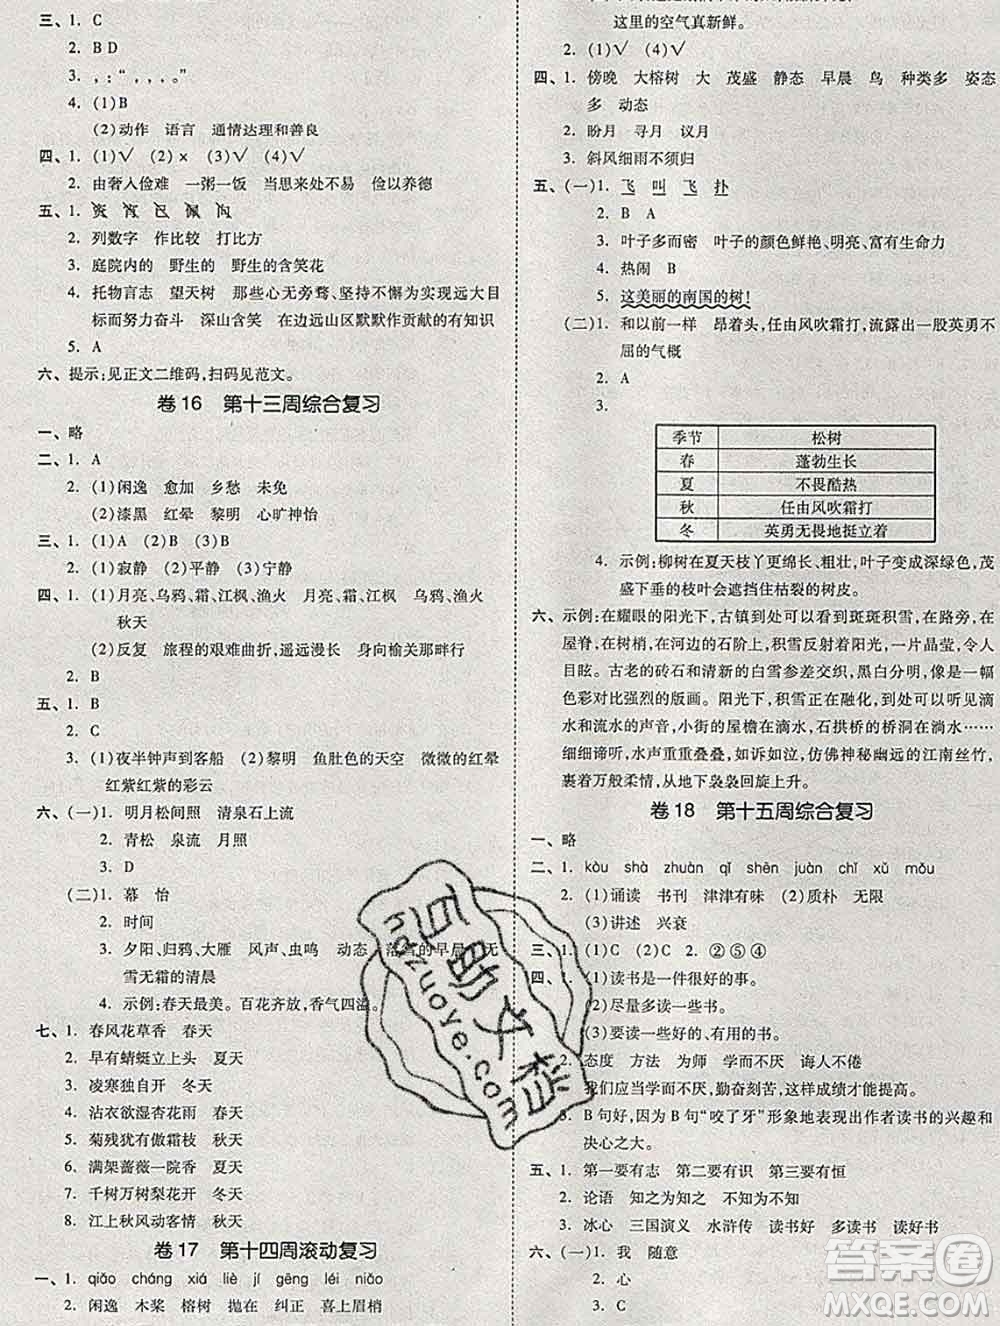 三、1. C
2. B D
3. ，：“，，，。”
4. (1)B
(2)动作 语言 通情达理和善良
四、1. (1)√ (2)× (3)√ (4)√
2. 由奢入俭难 一粥一饭 当思来处不易 俭以养德
五、1.
2. 列数字 作比较 打比方
3. 庭院内的 野生的 野生的含笑花
4. 托物言志 望天树 那些心无旁骛、坚持不懈为实现远大目
标而努力奋斗 深山含笑 在边远山区默默作贡献的有知识
5. A
六、提示：见正文二维码，扫码见范文。
卷 16 第十三周综合复习
一、略
二、1. A
2. (1)闲逸 愈加 乡愁 未免
(2)漆黑 红晕 黎明 心旷神怡
三、1. (1)A (2)B (3)B
2. (1)寂静 (2)平静 (3)宁静
四、1. (1)月亮、乌鸦、霜、江枫、渔火 月亮、霜、江枫 乌鸦、渔火
秋天
(2)反复 旅程的艰难曲折，遥远漫长 身向榆关那畔行
2. B
五、1. B
2. C
3. (1)夜半钟声到客船 (2)黎明 鱼肚色的天空 微微的红晕
红紫红紫的彩云
六、(一)1. 明月松间照 清泉石上流
2. 青松 泉流 月照
3. D
(二)1. 慕 怡
2. 时间
3. 夕阳、归鸦、大雁 风声、虫鸣 动态 落雪的早晨 无
雪无霜的清晨
4. 示例：春天最美。百花齐放，香气四溢。
七、1. 春风花草香 春天
2. 早有蜻蜓立上头 夏天
3. 凌寒独自开 冬天
4. 沾衣欲湿杏花雨 春天
5. 菊残犹有傲霜枝 秋天
6. 满架蔷薇一院香 夏天
7. 千树万树梨花开 冬天
8. 江上秋风动客情 秋天
卷 17 第十四周滚动复习
一、1. qiǎo cháng xiá liè jī gēng léi niǎo
2. 闲逸 木桨 榕树 抛在 纠正 喜上眉梢
这里的空气真新鲜。
2. (1)√ (4)√
四、1. 傍晚 大榕树 大 茂盛 静态 早晨 鸟 种类多 姿态
多 动态
2. 盼月 寻月 议月
3. 斜风细雨不须归
五、(一)1. 飞 叫 飞 扑
2. B A
3. 叶子多而密 叶子的颜色鲜艳、明亮、富有生命力
4. 热闹 B
5. 这美丽的南国的树！
(二)1. 和以前一样 昂着头，任由风吹霜打，流露出一股英勇不
屈的气概
2. A
3.
季节 松树
春 蓬勃生长
夏 不畏酷热
秋 任由风吹霜打
冬 英勇无畏地挺立着
4. 示例：柳树在夏天枝丫更绵长、粗壮，叶子变成深绿色，茂
盛下垂的枝叶会遮挡住枯裂的树皮。
六、示例：在耀眼的阳光下，古镇到处可以看到斑斑积雪，在路旁，在
屋脊，在树梢，在河边的石阶上，积雪反射着阳光，一片晶莹，令人
目眩。古老的砖石和清新的白雪参差交织，黑白分明，像是一幅
色彩对比强烈的版画。阳光下，积雪正在融化，到处可以听见滴
水和流水的声音，小街的屋檐在滴水，石拱桥的桥洞在淌水……
细细谛听，水声重重叠叠，如诉如泣，仿佛神秘幽远的江南丝竹，
裹着万般柔情，从地下袅袅回旋上升。
卷 18 第十五周综合复习
一、略
二、1. kòu shà zhuàn qǐ shèn juàn chǐ xǔ mǒu
2. (1)诵读 书刊 津津有味 (2)质朴 无限
(3)讲述 兴衰
三、1. (1)C (2)C 2. ②⑤④
四、1. (1)读书是一件很好的事。
(2)尽量多读一些书。
(3)要读一些好的、有用的书。
2. 态度 方法 为师 学而不厌 诲人不倦
我们应当学而不厌，勤奋刻苦，这样成绩才能提高。
3. B句好，因为B句“咬了牙”形象地表现出作者读书的兴趣和
决心之大。
五、1. 第一要有志 第二要有识 第三要有恒
2. 论语 知之为知之 不知为不知
3. 冰心 三国演义 水浒传 读书好 多读书 读好书
六、(一)1. 我 随意
2. 心
3. C
百助文档
hdzuoye.com
答案圈
MXQE.COM